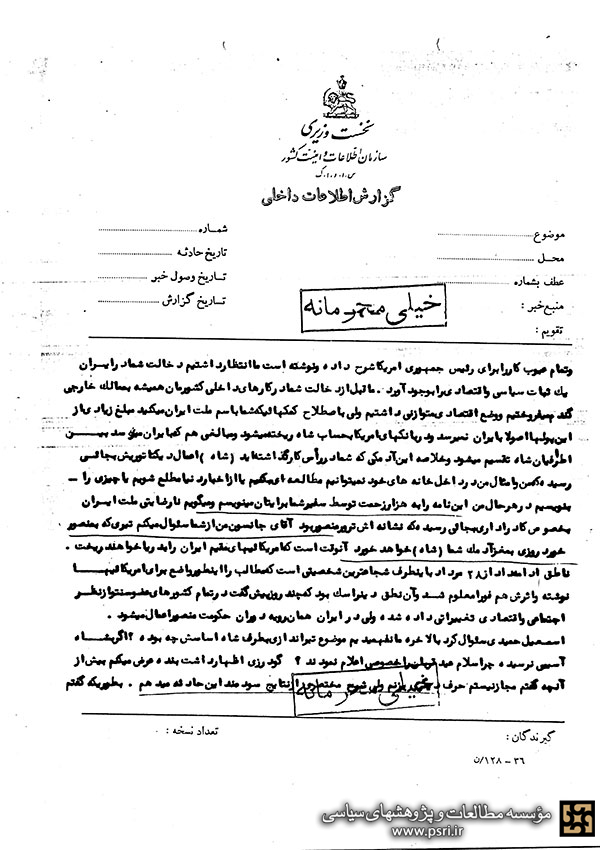 نخست وزیری
سازمان اطلاعات و امنیت کشور
س.ا.و.ا.ک
گزارش اطلاعات داخلی
موضوع
محل
عطف بشماره
منبع خبر :
تقویم :
شماره
تاریخ حادثه
تاریخ وصول خبر
تاریخ گزارش
خیلی محرمانه
وتمام عیوب کار را برای رئیس جمهوری امریکا شرح داده و نوشته است ما انتظار داشتیم دخالت شما در ایران
یک ثبات سیاسی و اقتصادی را بوجود آورد . ما قبل از دخالت شما در کارهای داخلی کشورمان همیشه بممالک خارجی
گندم میفروختیم و وضع اقتصادی متوازنی داشتیم ولی با صطلاح کمکهائیکه شما باسم ملت ایران میکنید مبلغ زیادی از
این پولها اصولا بایران نمیرسد و در بانکهای امریکا بحساب شاه ریخته میشود و مبالغی هم که بایران میرسد بیـن
اطرافیان شاه تقسیم میشود و خلاصه این آدمکی که شما در رأس کار گذاشته اید ( شاه ) اعمال دیکتاتوریش بجائی
رسیده که من و امثال من در داخل خانه های خود نمیتوانیم مطالعه ای بکنیم یا از اخبار دنیا مطلع شویم یا چیزی را –
بنویسیم در هر حال من این نامه را به هزار زحمت توسط سفیر شما برایتان مینویسم و میگویم نارضایتی ملت ایـران
بخصوص کادر اداری بجائی رسیده که نشانه اش ترور منصور بود آقای جانسون من از شما سئوال میکنم تیری که بمنصور
خورد روزی بمغز آدمک شما ( شاه ) خواهد خورد آنوقت است که امریکائیهای مقیم ایران را بدریا خواهند ریخت .
ناطق ادامه داد از ۲۸ مرداد باینطرف شجاعترین شخصیتی است که مطالب را اینطور واضح برای امریکائیهـا
نوشته و اثرش هم فورا معلوم شد و آن نطق دین راسک بود که چند روز پیش گفت در تمام کشورهای عضو سنتو از نظر
اجتماعی و اقتصادی تغییراتی داده شده ولی در ایران همان رویه دوران حکومت منصور اعمال میشود .
اسمعیل حمیدی سئوال کرد بالاخره ما نفهمیدیم موضوع تیراندازی بطرف شاه اساسش چه بوده ؟ اگر بشـاه
آسیبی نرسیده چرا سلام عید قربان را خصوصی اعلام نمودند ؟ گودرزی اظهار داشت بنده عرض میکنم بیش از
آنچه گفتم مجاز نیستم حرف بزنم ولی شرح مختصری از نتایج سودمند این حادثه میدهم . بطوریکه گفتم
خیلی محرمانه
گیرندگان :
تعداد نسخه :
۳۶ – ۱۲۸/ن
مؤسسه مطالعات و پژوهشهای سیاسی
www.psri.ir